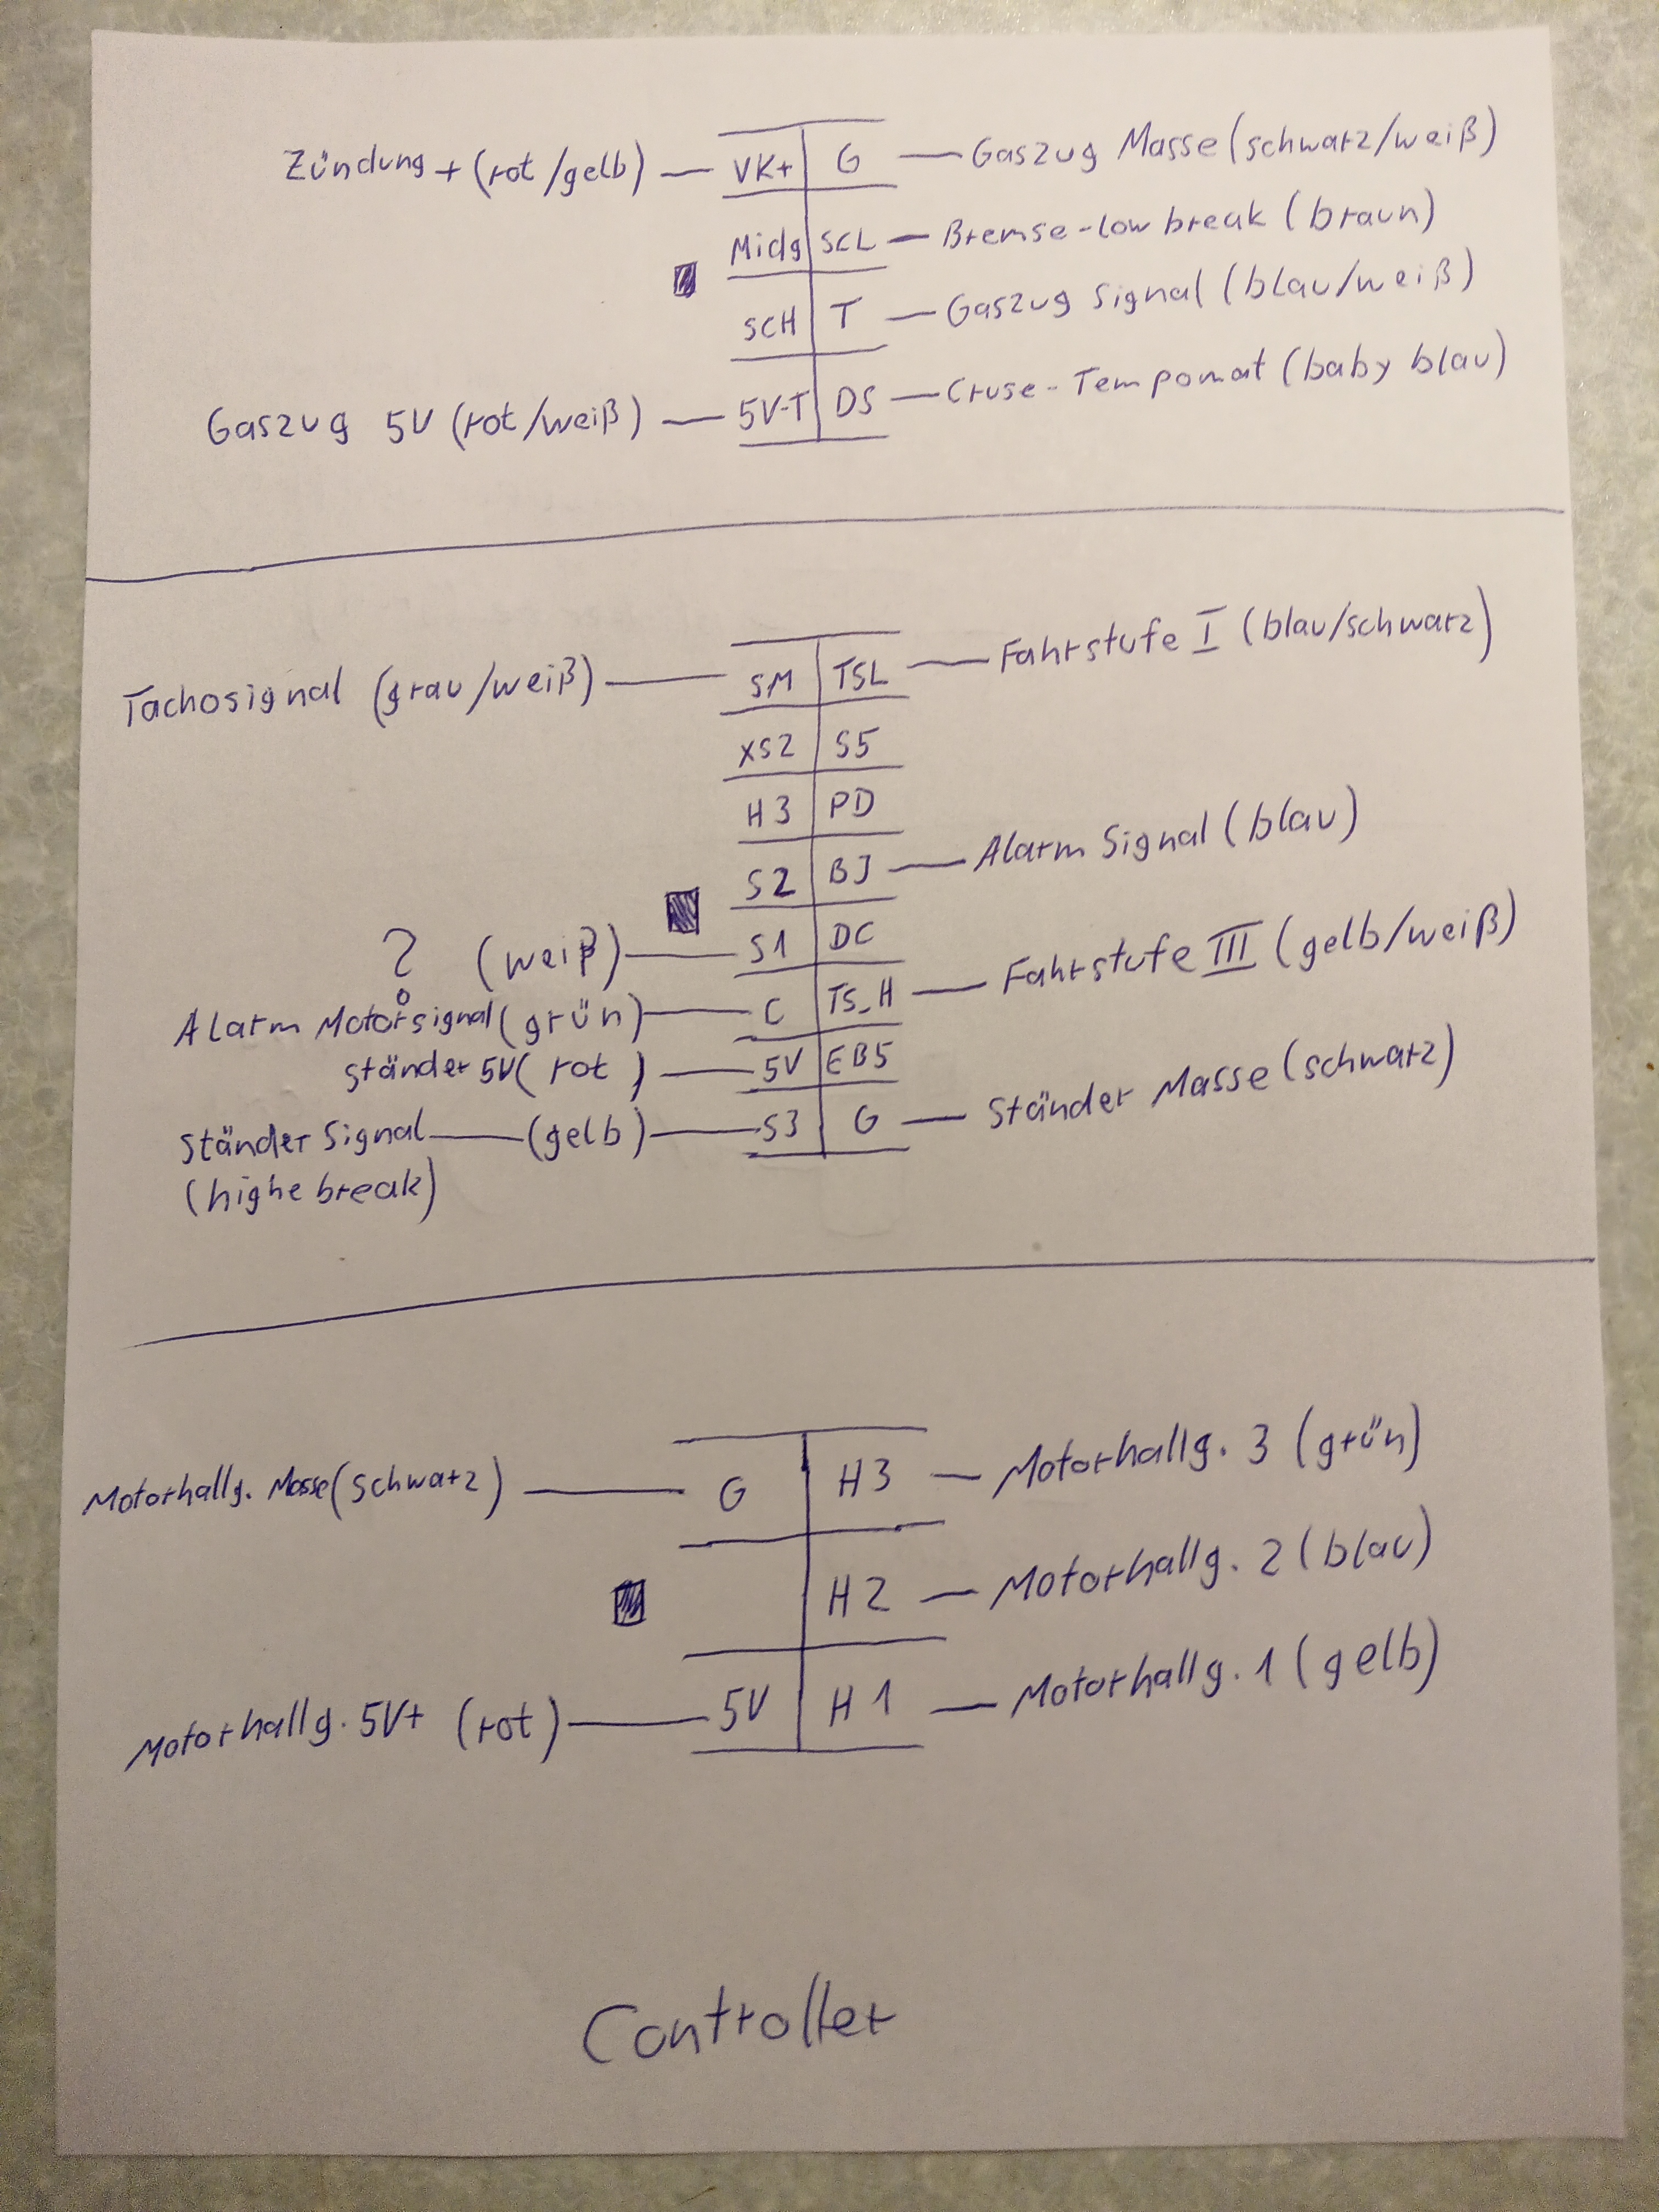 Zündung + (rot/gelb) — VK+ G — Gaszug Masse (schwarz/weiß)
Midg SCL — Bremse-low break (braun)
SCH T — Gaszug Signal (blau/weiß)
Gaszug 5V (rot/weiß) — 5V-T DS — Cruse-Tempomat (baby blau)
Tachosignal (grau/weiß) — SM TSL — Fahrstufe I (blau/schwarz)
XS2 S5
H3 PD
S2 BJ — Alarm Signal (blau)
? (weiß) — S1 DC
Alarm Motorsignal (grün) — C TS_H — Fahrstufe III (gelb/weiß)
Ständer 5V (rot) — 5V EB5
Ständer Signal — (gelb) — S3 G — Ständer Masse (schwarz)
(highe break)
Motorhallg. Masse (schwarz) — G H3 — Motorhallg. 3 (grün)
H2 — Motorhallg. 2 (blau)
Motorhallg. 5V+ (rot) — 5V H1 — Motorhallg. 1 (gelb)
Controller